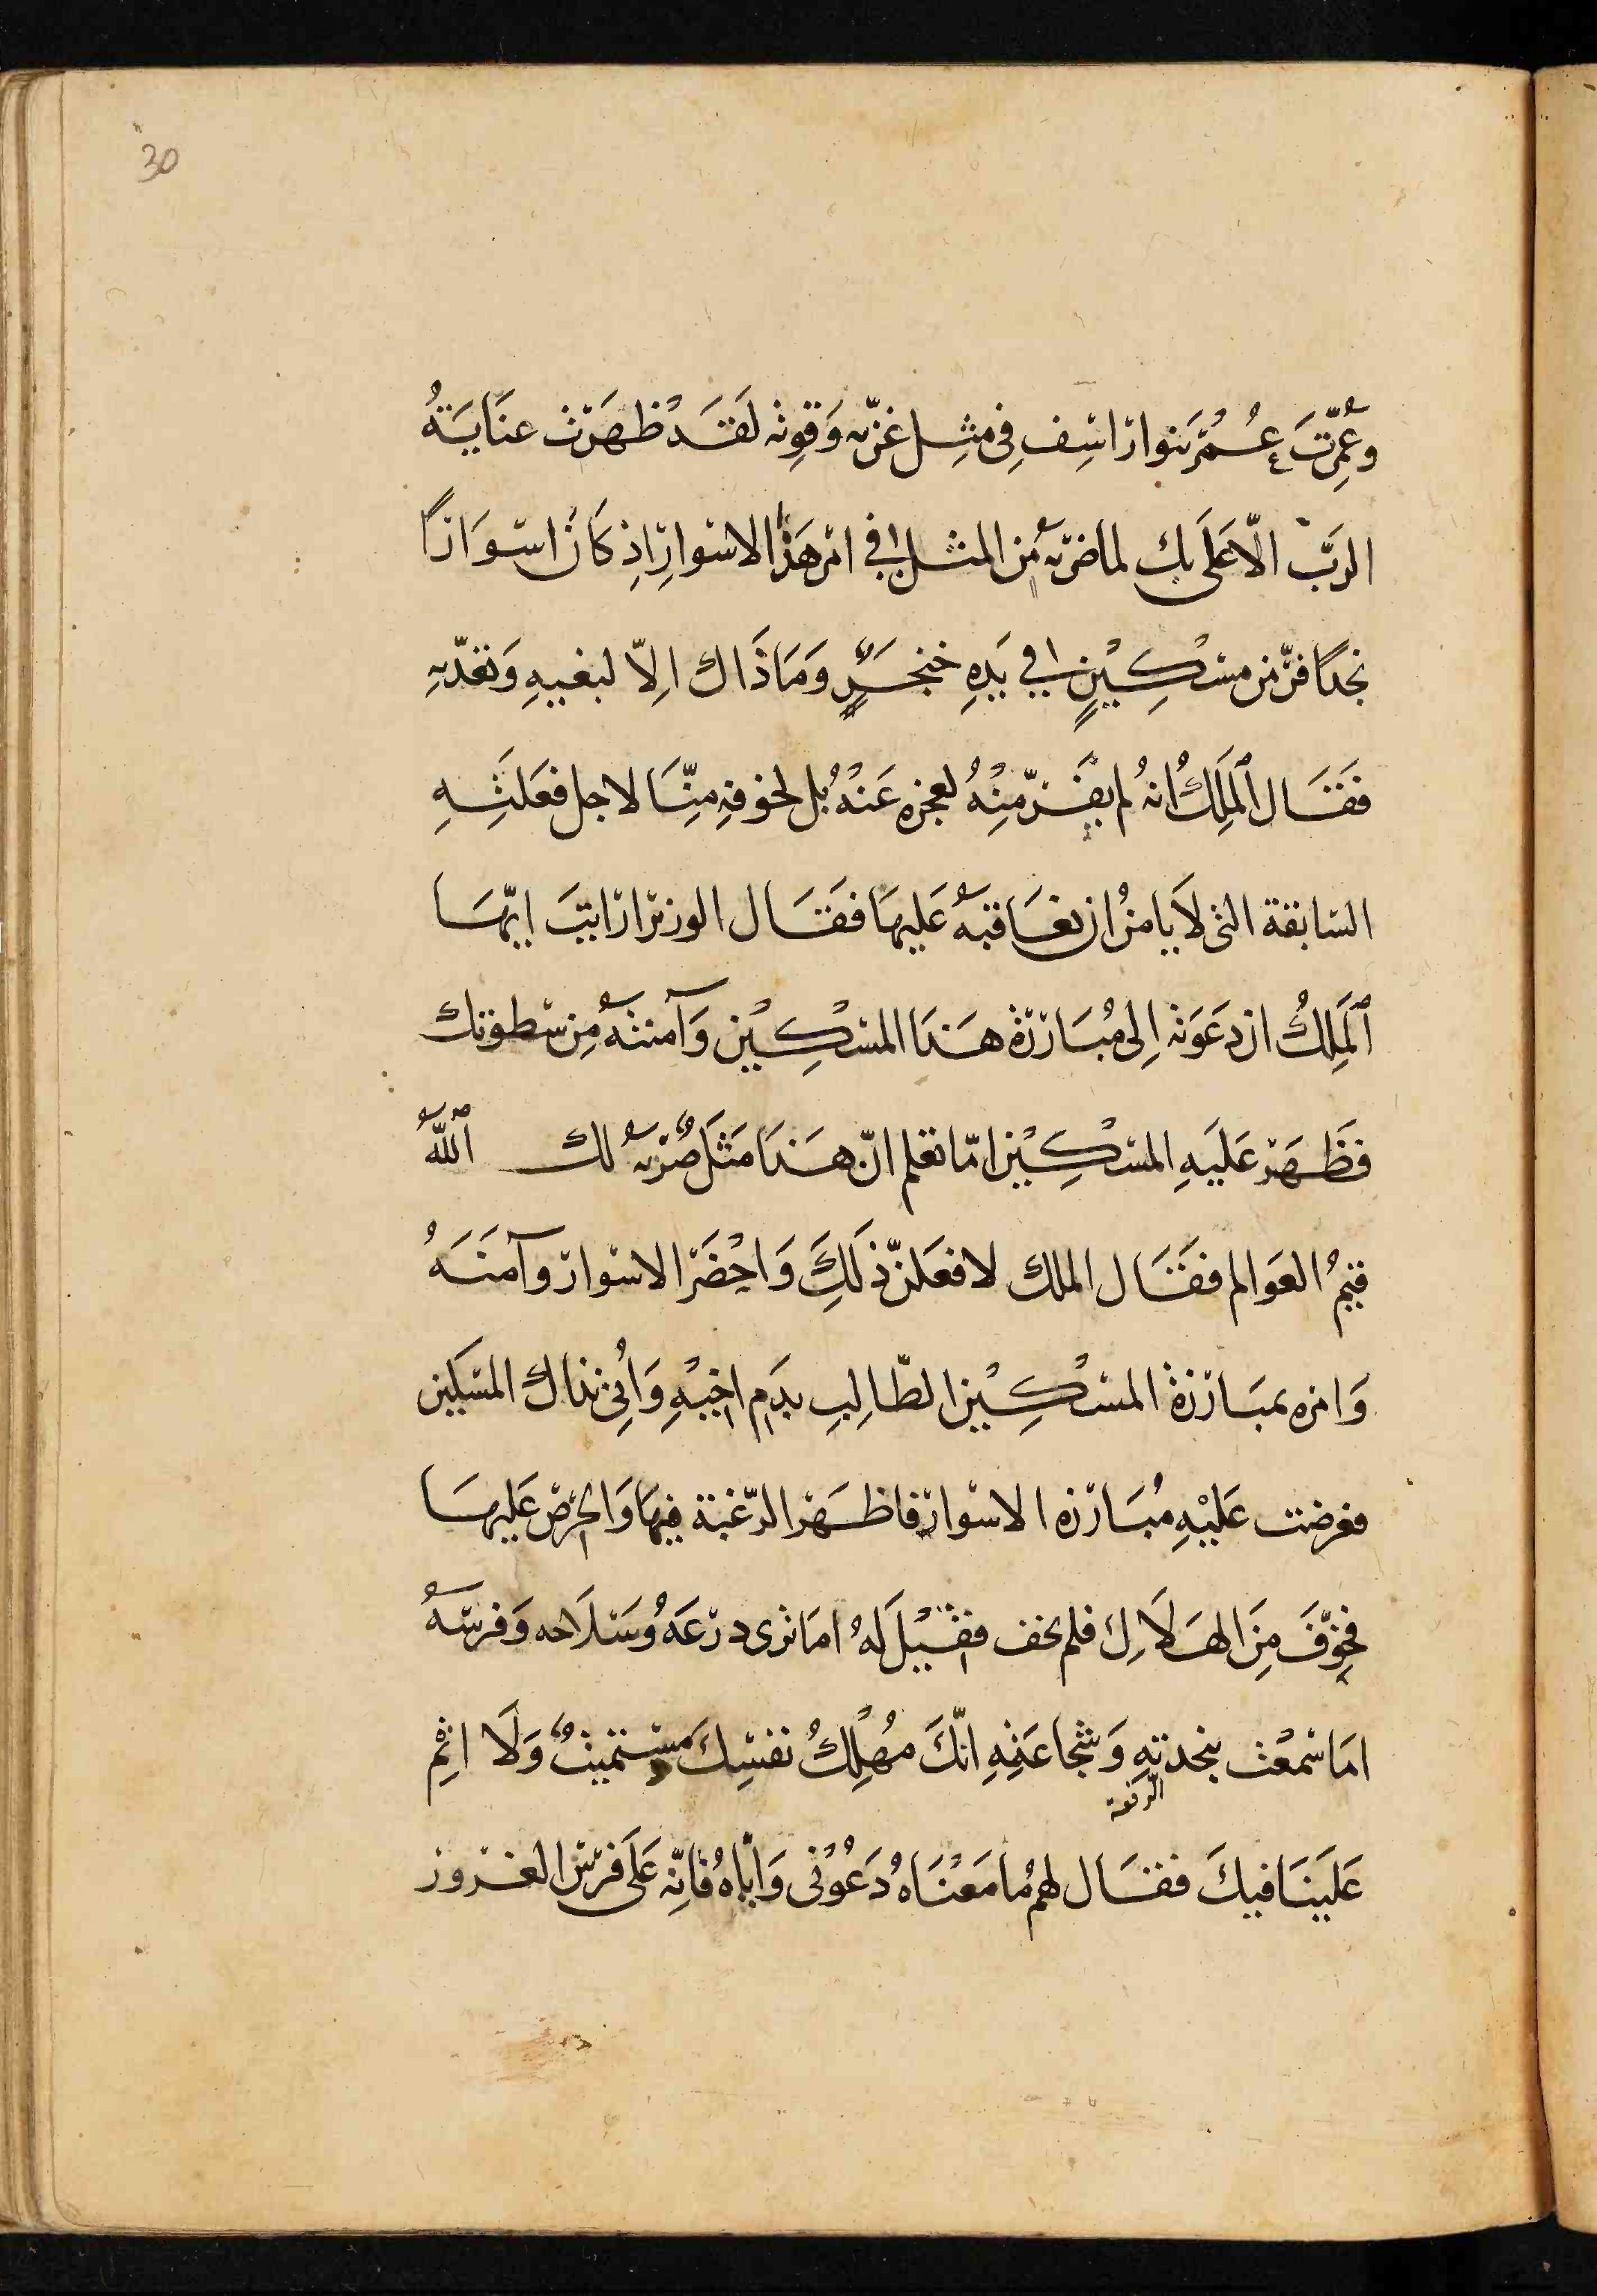 30
وعُمِّرتَ عُمُر بنوارٓاسِف فى مثِل عزّه وَقوته لَقَد ظهَرَت عنَايَةُ
الربّ الّا عَلَى بك لما ضربهُ من المثل فى امر هَذا الاسْوارِ اذِ كَانَ اسْوَارًا
نجدًا فرّ من مسْكِيْنٍ فى يَدِهِ خنجَرٌ وَمَا ذَاك اِلّا لبغيهِ وَتعَدّيهِ
فقَال المَلِكُ انهُ لم يَفرّ مِنْهُ لعجزه عَنْهُ بل لخوفهِ مِنّا لاجل فعَلَتِهِ
السّابقة التى لَا يامنُ ان نعَاقبهُ عَليهَا فقَال الوزيرُ ارَايتَ ايّهَا
المَلِكُ ان دعَوَته اِلى مُبَارَزة هَذا المسْكِيْن وَآمنتهُ مِن سَطوتك
فظَهَر عَلَيهِ المسْكِيْن امَا تعلم انّ هَذا مَثَلٌ ضرَبهُ لك اللهُ
قيمُ العَوالم فقَال الملك لافعَلنّ ذَلكَ وَاحْضَر الاسْوار وآمَنَهُ
وَامره بمبَارَزة المسْكِيْن الطّالِبِ بدَمِ اخيْهِ وَاُتِىَ بذاك المسَكين
فعرضت عَليْهِ مُبَارَزه الاسْوار فاظهَر الرّغبَة فيهَا وَالحرْصَ عَليهَا
فخوِّفَ مِنَ الهَلَاكِ فلم يخف فقيْلَ لهُ امَا ترى درْعَهُ وَسَلَاحه وَفرسَهُ
امَا سْمعْت بنجدتهِ وَشَجَاعَتِهِ انّكَ مُهْلِكُ نفسِكَ مستميتٌ وَلَا اثم
عَلَينَا فيكَ فقَال لهمُ مَا مَعْنَاهُ دَعُوْنى وَايّاهُ فانِّه عَلَى فرَس الغرور